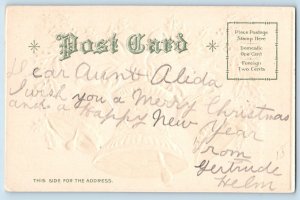 Post Card
Place Postage
Stamp Here
Domestic
One Cent
Foreign
Two Cents
Dear Aunt Alida
I wish you a Merry Christmas
and a Happy New Year
From
Gertrude
Helm
THIS SIDE FOR THE ADDRESS.